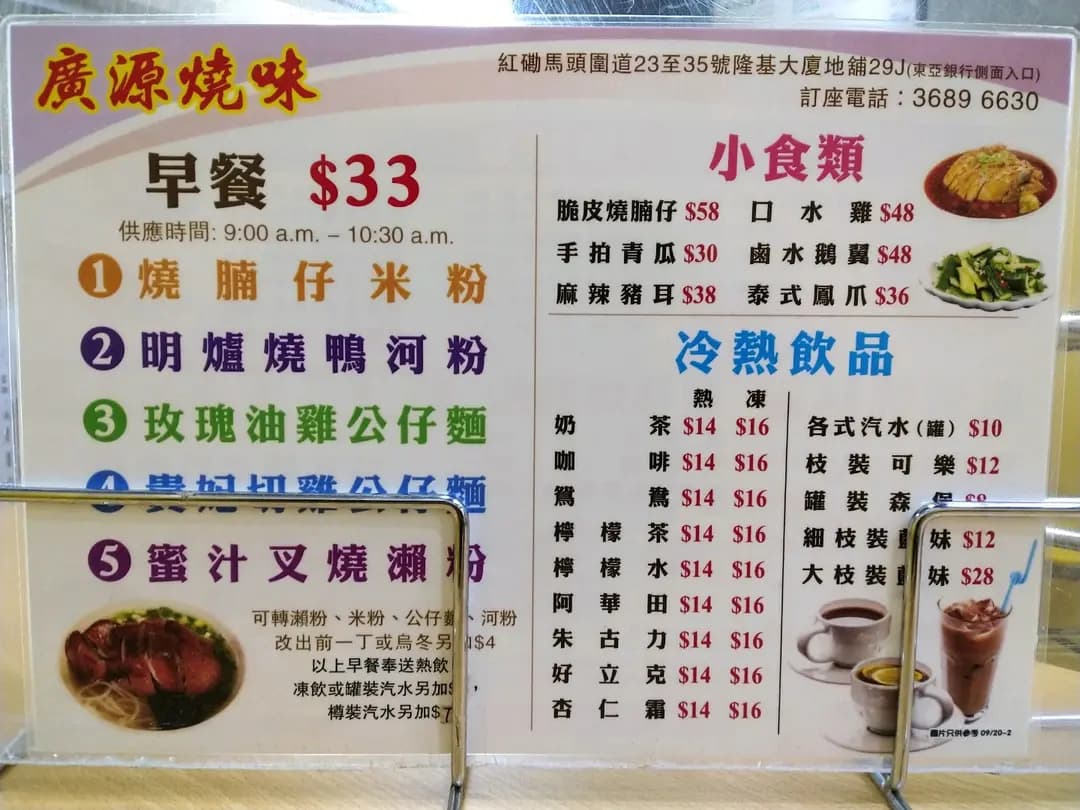 廣源燒味
紅磡馬頭圍道23至35號隆基大廈地舖29J(東亞銀行側面入口)
訂座電話：3689 6630
早餐 $33
供應時間: 9:00 a.m. – 10:30 a.m.
1 燒腩仔米粉
2 明爐燒鴨河粉
3 玫瑰油雞公仔麵
4 貴妃切雞公仔麵
5 蜜汁叉燒瀨粉
可轉瀨粉、米粉、公仔麵、河粉
改出前一丁或烏冬另加$4
以上早餐奉送熱飲
凍飲或罐裝汽水另加$
樽裝汽水另加$7
小食類
脆皮燒腩仔 $58 口水雞 $48
手拍青瓜 $30 鹵水鵝翼 $48
麻辣豬耳 $38 泰式鳳爪 $36
冷熱飲品
熱 凍
奶茶 $14 $16
咖啡 $14 $16
鴛鴦 $14 $16
檸檬茶 $14 $16
檸檬水 $14 $16
阿華田 $14 $16
朱古力 $14 $16
好立克 $14 $16
杏仁霜 $14 $16
各式汽水(罐) $10
枝裝可樂 $12
罐裝森 $8
細枝裝藍妹 $12
大枝裝藍妹 $28
圖片只供參考 09/20-2